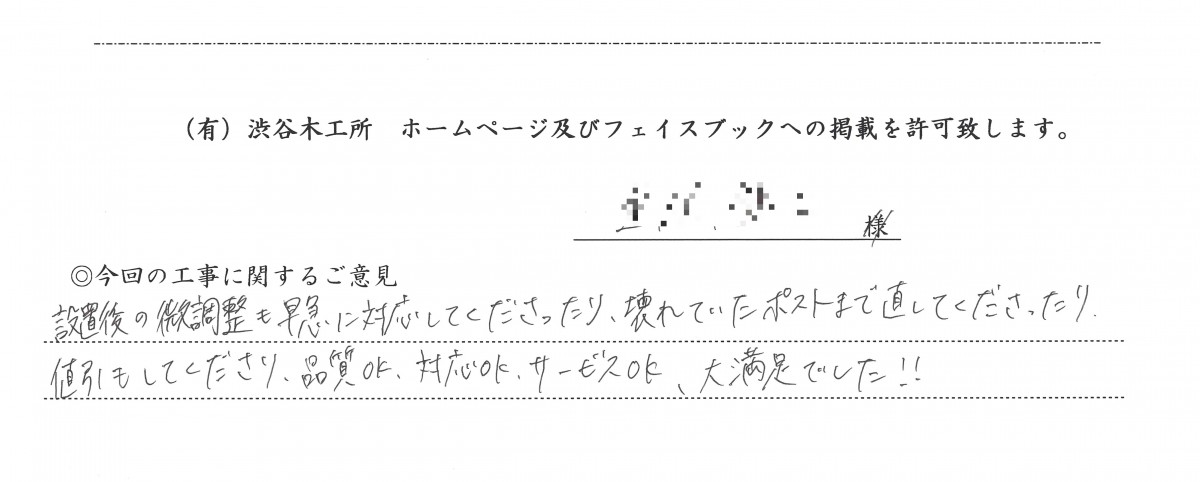 （有）渋谷木工所　ホームページ及びフェイスブックへの掲載を許可致します。
様
◎今回の工事に関するご意見
設置後の微調整も早急に対応してくださったり、壊れていたポストまで直してくださったり、
値引もしてくださり、品質OK、対応OK、サービスOK、大満足でした!!